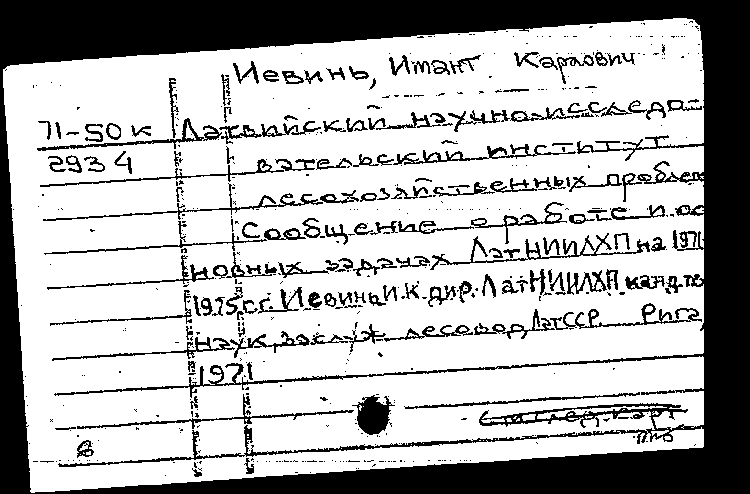 Иевинь, Имант Карлович
71-50к Латвийский научно-исследо-
2934 вательский институт
лесохозяйственных проблем
Сообщение о работе и ос
новных задачах ЛатНИИЛХП на 1971
1975 гг. Иевинь И.К. дир. ЛатНИИЛХП канд. те
наук, заслуж лесовод ЛатССР. Рига,
1971
См. след. карт
8